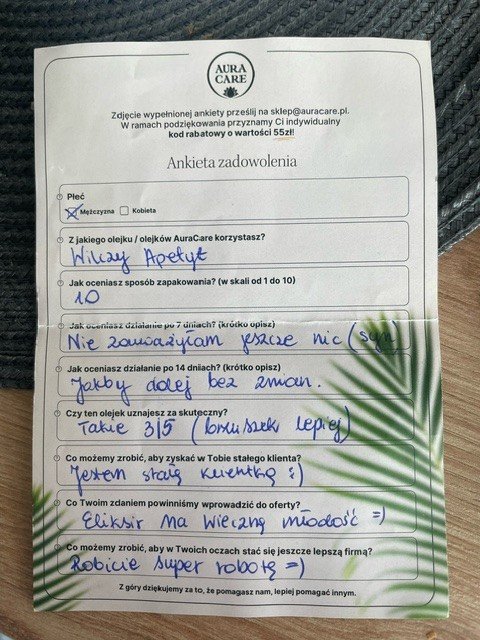 AURA
CARE
Zdjęcie wypełnionej ankiety prześlij na sklep@auracare.pl.
W ramach podziękowania przyznamy Ci indywidualny
kod rabatowy o wartości 55zł!
Ankieta zadowolenia
Płeć
Mężczyzna Kobieta
Z jakiego olejku / olejków AuraCare korzystasz?
Wilczy Apetyt
Jak oceniasz sposób zapakowania? (w skali od 1 do 10)
10
Jak oceniasz działanie po 7 dniach? (krótko opisz)
Nie zauważyłam jeszcze nic (syn)
Jak oceniasz działanie po 14 dniach? (krótko opisz)
Jakby dalej bez zmian.
Czy ten olejek uznajesz za skuteczny?
Takie 3/5 (brzuszek lepiej)
Co możemy zrobić, aby zyskać w Tobie stałego klienta?
Jestem stałą klientką :)
Co Twoim zdaniem powinniśmy wprowadzić do oferty?
Eliksir na wieczną młodość =)
Co możemy zrobić, aby w Twoich oczach stać się jeszcze lepszą firmą?
Robicie super robotę =)
Z góry dziękujemy za to, że pomagasz nam, lepiej pomagać innym.